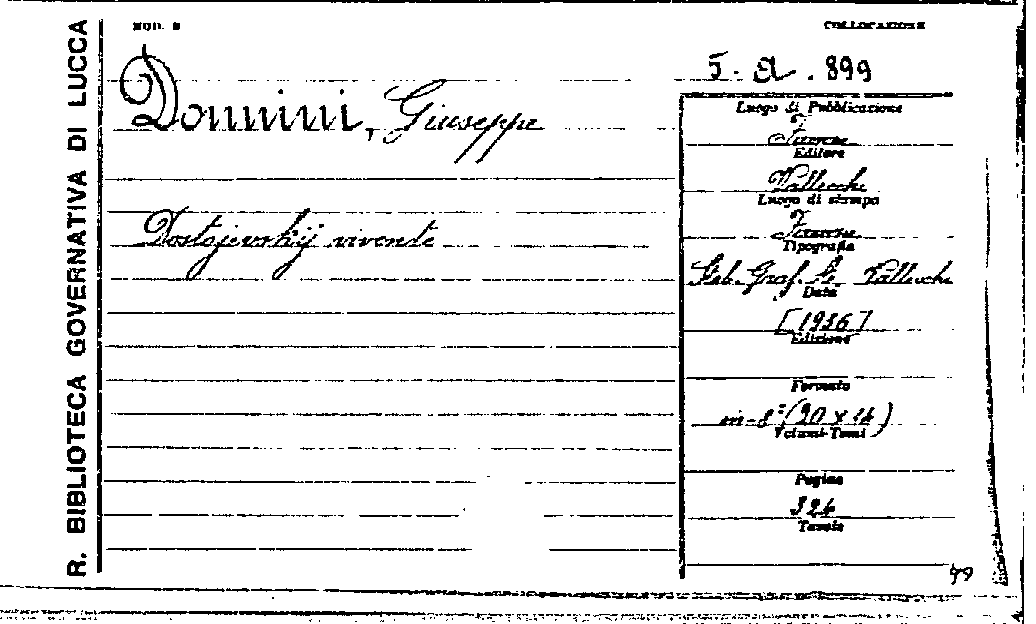 R. BIBLIOTECA GOVERNATIVA DI LUCCA
MOD. B
COLLOCAZIONE
5. A. 899
Donnini, Giuseppe
Dostojevskij vivente
Luogo di Pubblicazione
Firenze
Editore
Vallecchi
Luogo di stampa
Firenze
Tipografia
Stab. Graf. A. Vallecchi
Data
[1936]
Edizione
Formato
in-8° (20 x 14)
Volumi-Tomi
Pagine
324
Tavole